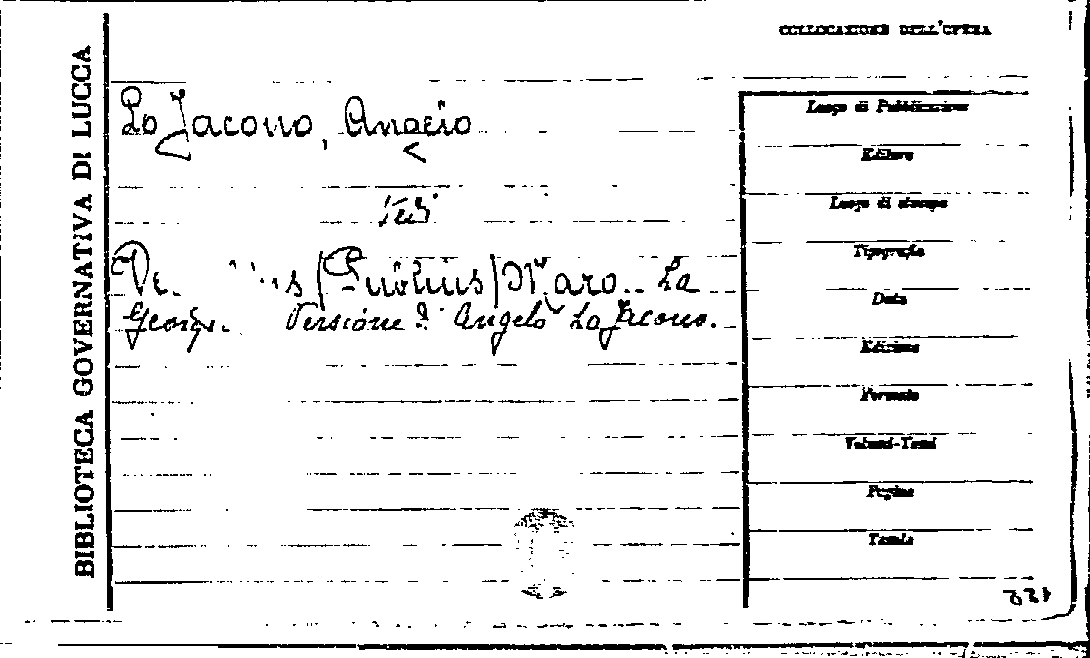 COLLOCAZIONE DELL'OPERA
BIBLIOTECA GOVERNATIVA DI LUCCA
Lo Jacono, Angelo
Vedi
(Publius) Maro. La
Versione d' Angelo Lo Jacono.
Luogo di Pubblicazione
Editore
Luogo di stampa
Tipografia
Data
Edizione
Formato
Volumi-Tomi
Pagine
Tavole